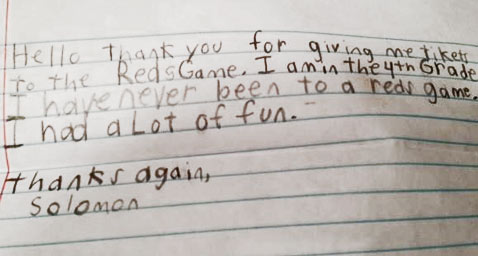 Hello Thank you for giving me tikets
to the RedsGame. I am in the 4th Grade
I have never been to a reds game.
I had a Lot of fun.
thanks again,
Solomon